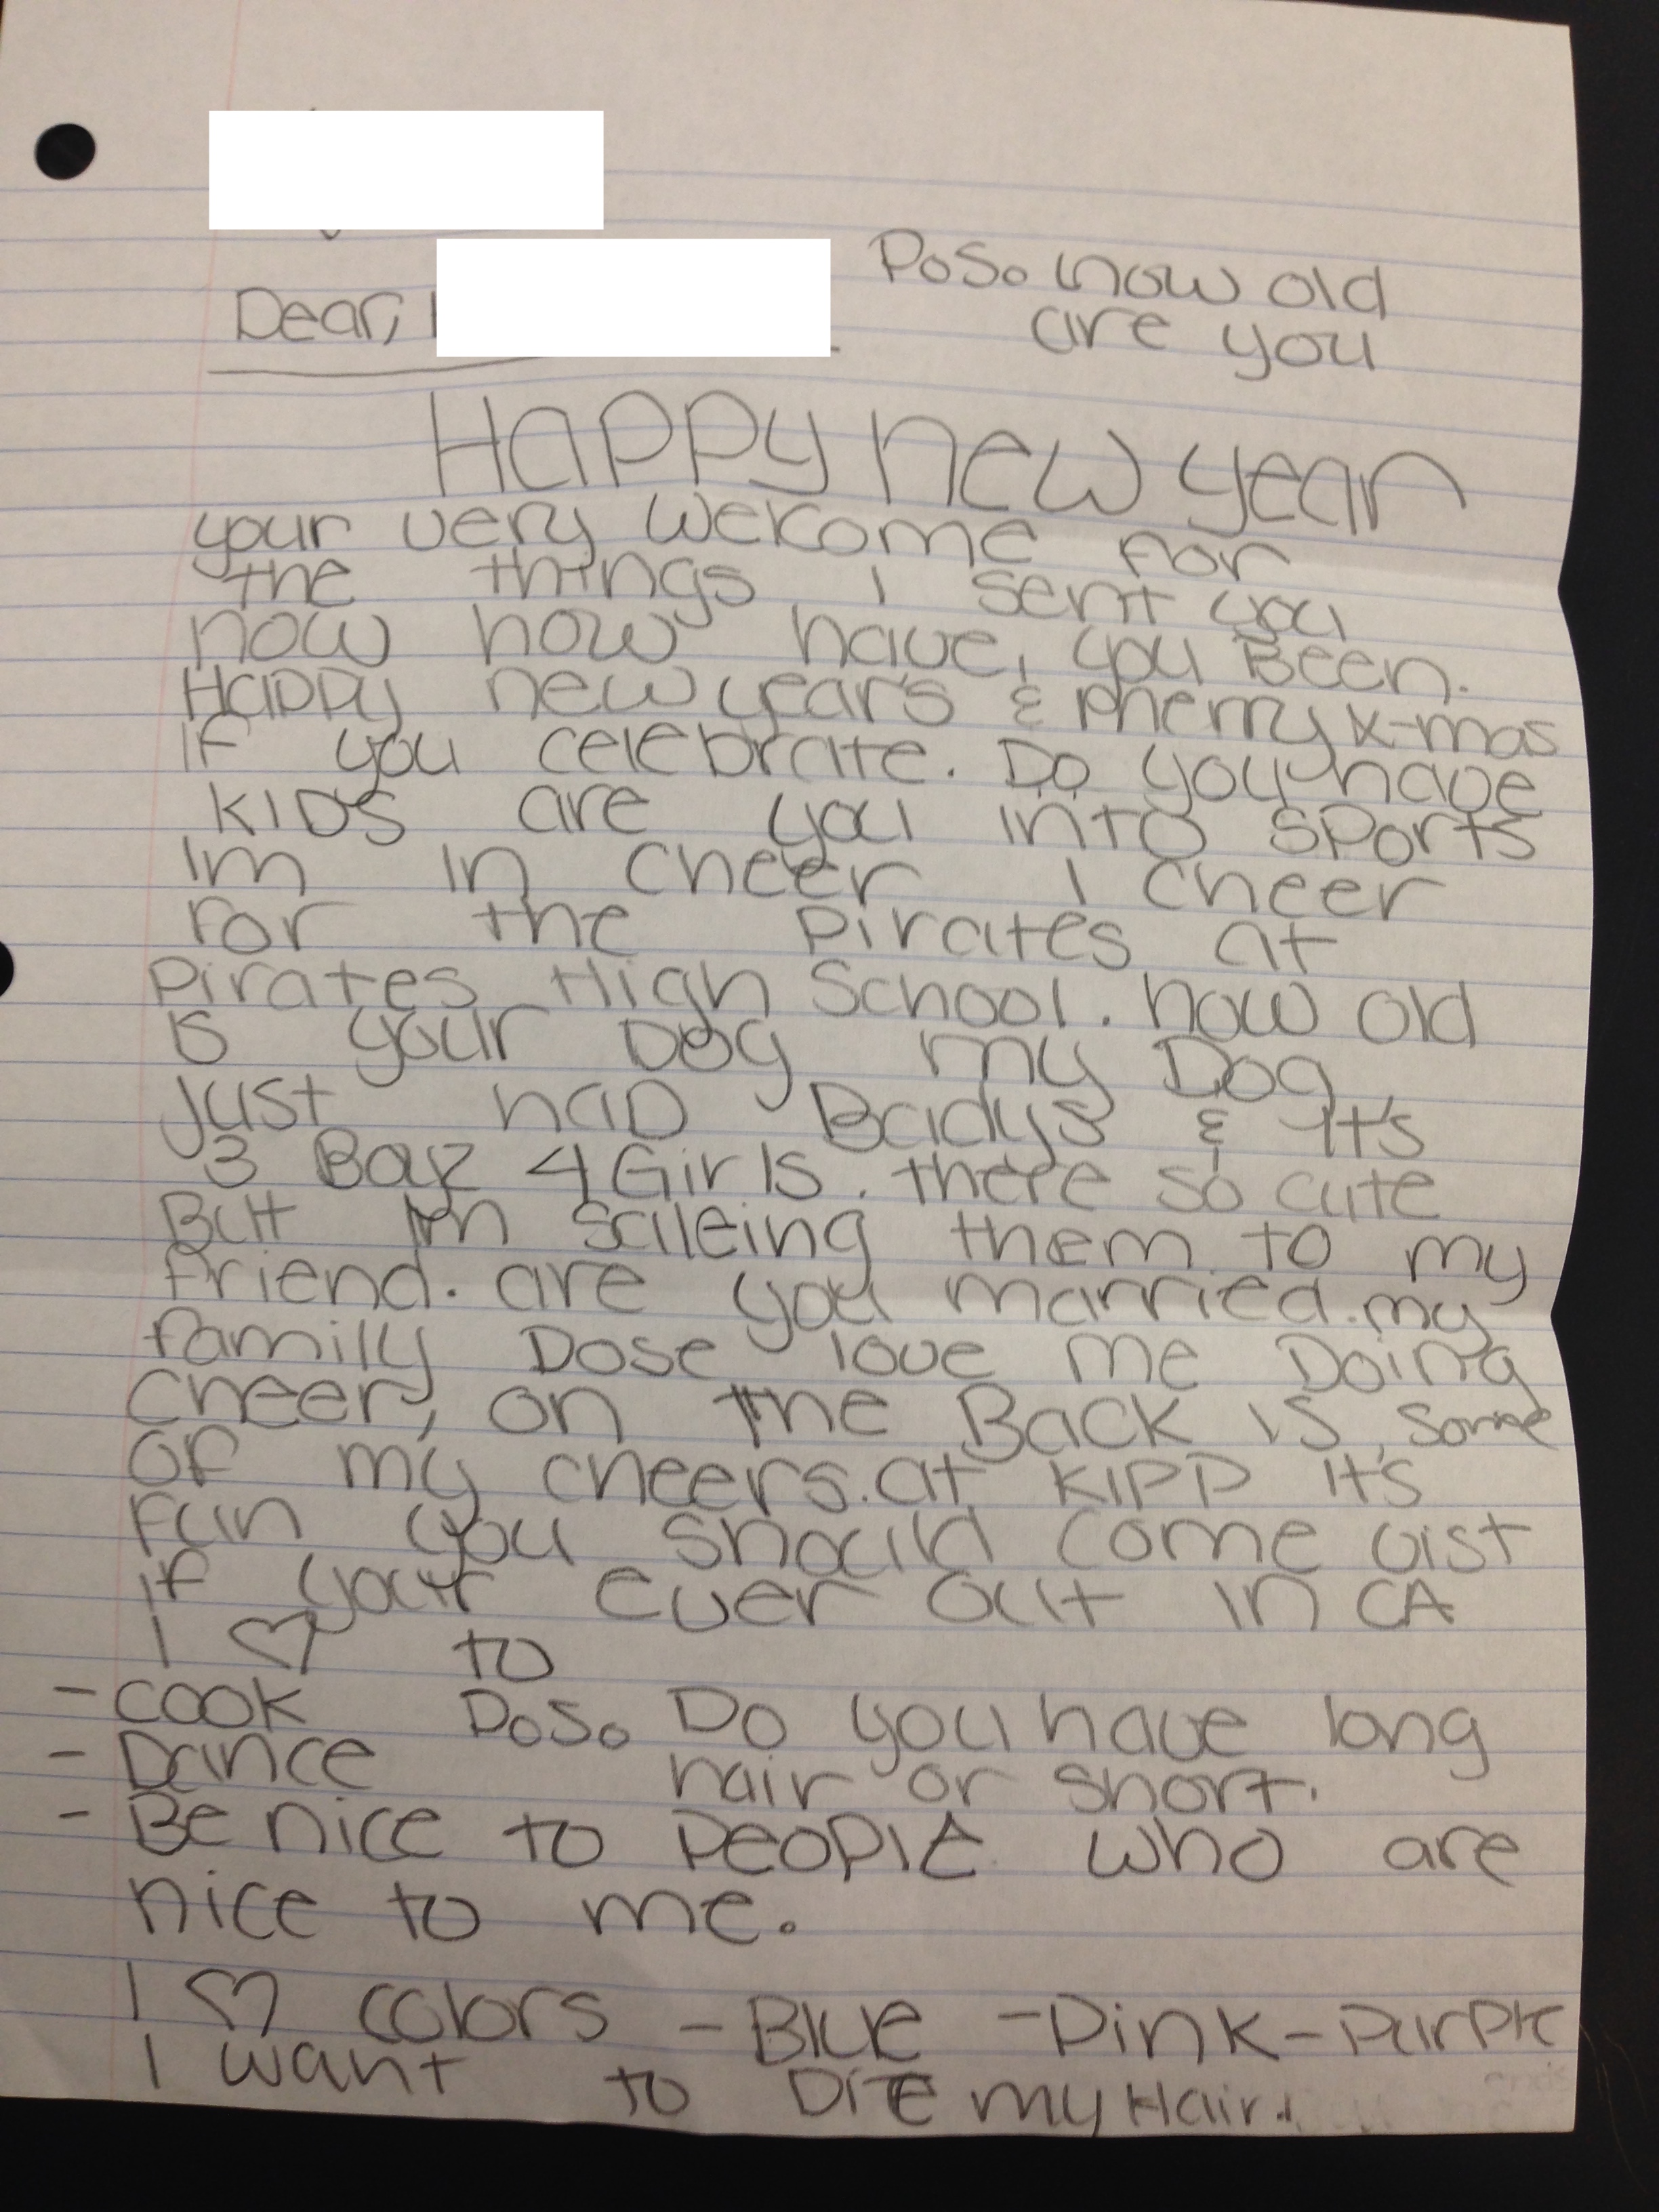 Dear,
P.S. how old
are you
Happy new year
your very welcome for
the things I sent you
now how have, you Been.
Happy new year's & Merry x-mas
if you celebrate. Do you have
KIDS are you into sports
Im in cheer I cheer
for the Pirates at
Pirates High School. how old
is your Dog my Dog
just had Badys & it's
3 Boyz 4 Girls. there so cute
But Im salleing them to my
friend. are you married. my
family Dose love me Doing
cheer, on the Back is some
of my cheers. at KIPP it's
fun you should come vist
if your ever out in CA
I ♡ to
- cook P.S. Do you have long
- Dance hair or short.
- Be nice to people who are
nice to me.
I ♡ colors - Blue - Pink - Purple
I want to Dite my Hair.